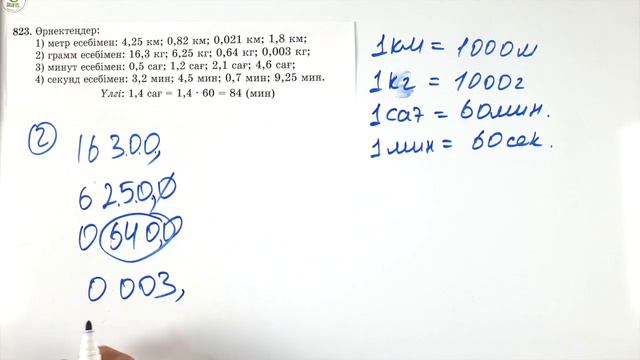 823. Өрнектеңдер:
1) метр есебімен: 4,25 км; 0,82 км; 0,021 км; 1,8 км;
2) грамм есебімен: 16,3 кг; 6,25 кг; 0,64 кг; 0,003 кг;
3) минут есебімен: 0,5 сағ; 1,2 сағ; 2,1 сағ; 4,6 сағ;
4) секунд есебімен: 3,2 мин; 4,5 мин; 0,7 мин; 9,25 мин.
Үлгі: 1,4 сағ = 1,4 · 60 = 84 (мин)
1 км = 1000 м
1 кг = 1000 г
1 сағ = 60 мин.
1 мин = 60 сек.
2
16 300,
6 250,0
0 640,0
0 003,